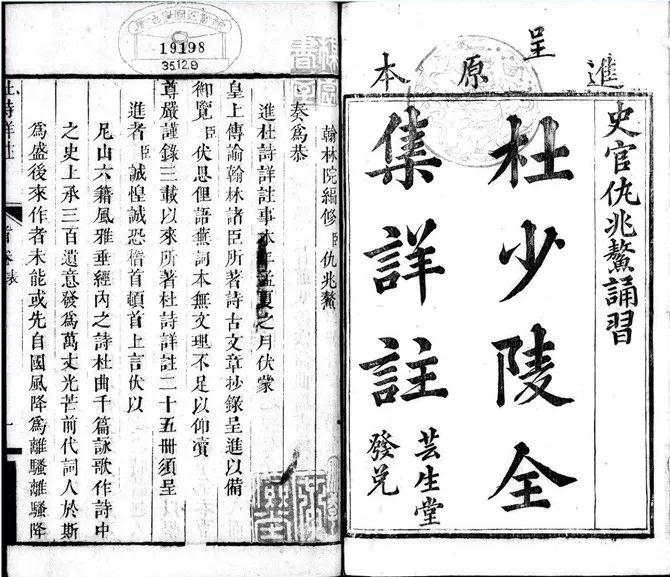 進呈原本
史官仇兆鰲誦習
杜少陵全
集詳註
芸生堂
發兌
19198
35.12.9
翰林院編修臣仇兆鰲
奏為恭
進杜詩詳註事本年孟夏之月伏蒙
皇上傳諭翰林諸臣所著詩古文章抄錄呈進以備
御覽臣伏思俚語蕪詞本無文理不足以仰瀆
尊嚴謹錄三載以來所著杜詩詳註二十五冊須呈
進者臣誠惶誠恐稽首頓首上言伏以
尼山六籍風雅垂經內之詩杜曲千篇詠歌作詩中
之史上承三百遺意發為萬丈光芒前代詞人於斯
為盛後來作者未能或先自國風降為離騷離騷降
杜詩詳註
首卷 表
一